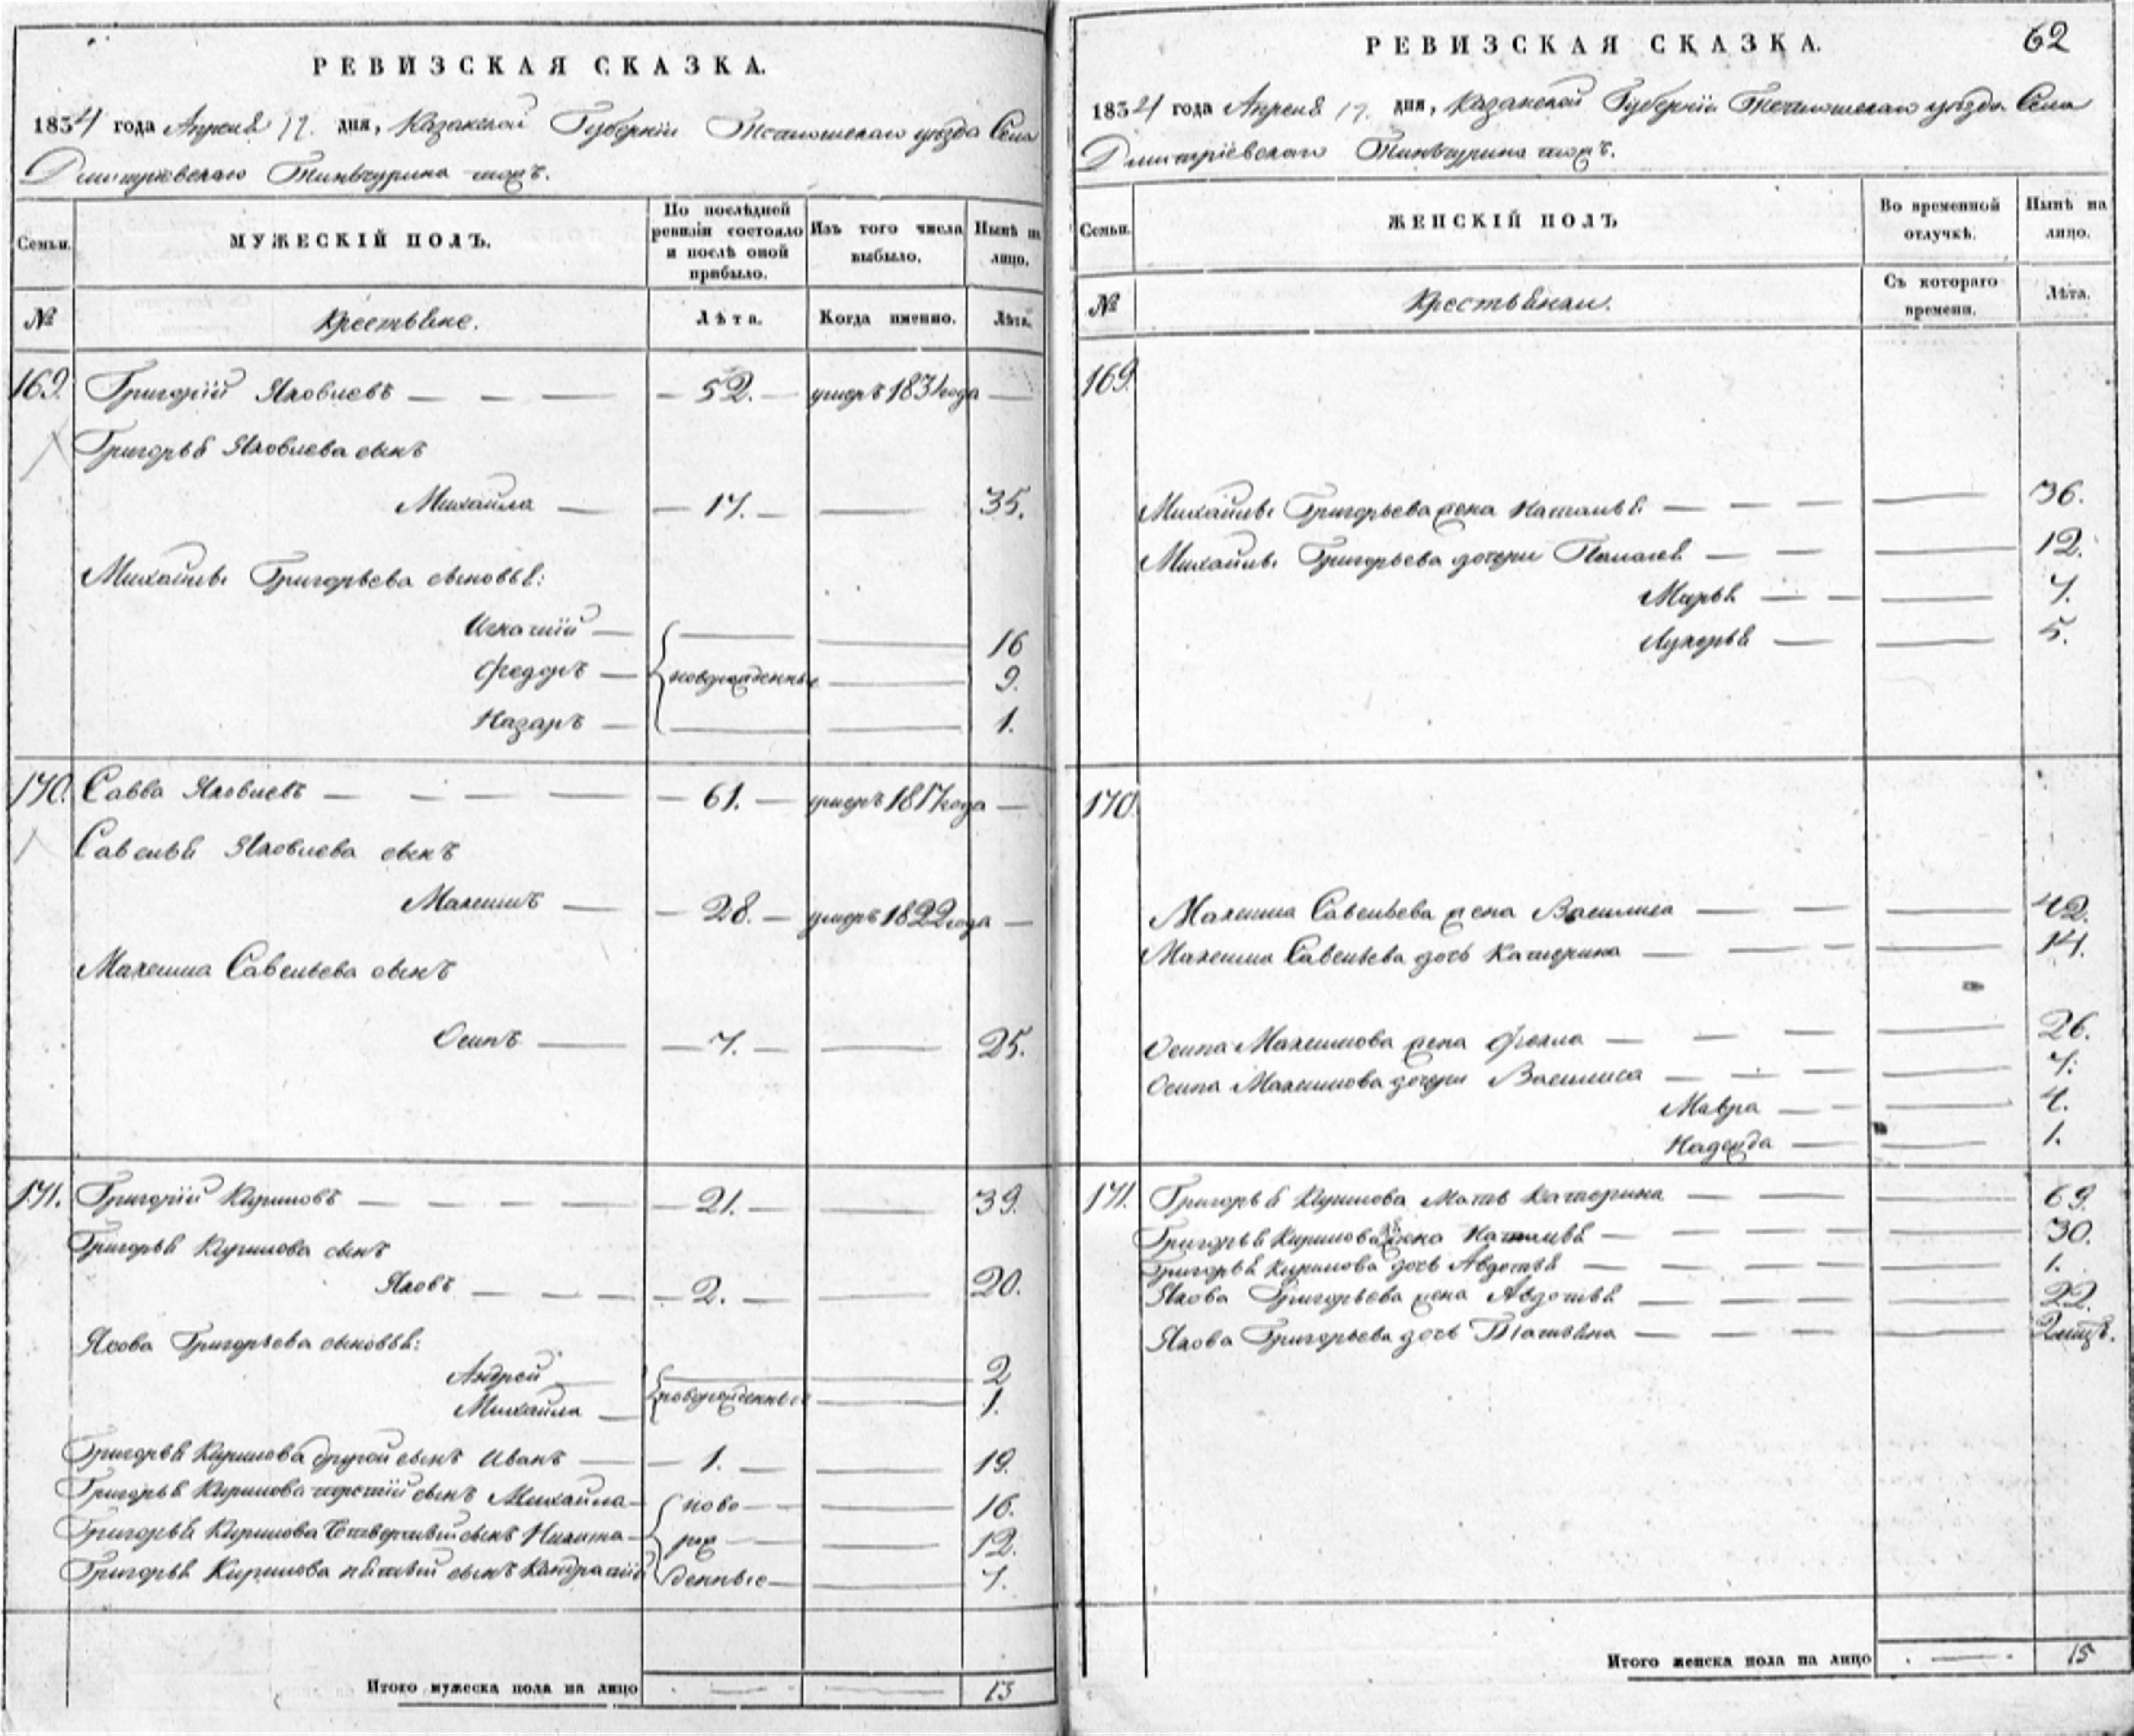 РЕВИЗСКАЯ СКАЗКА.
1834 года Апреля 17. дня, Казанской Губернии Тетюшскаго уезда Села
Дмитріевскаго Тинчурина тожъ.
Семьи.
МУЖЕСКІЙ ПОЛЪ.
По послѣдней ревизіи состояло и послѣ оной прибыло.
Изъ того числа выбыло.
Нынѣ на лицо.
№
Крестьяне.
Лѣта.
Когда именно.
Лѣта.
169. Григорій Яковлевъ — 52. — умеръ 1831 года —
Григорья Яковлева сынъ
Михайла — 17. — 35.
Михайлы Григорьева сыновья:
Игнатій — 16
Федоръ — новорожденные — 9.
Назаръ — 1.
170. Савва Яковлевъ — 61. — умеръ 1817 года —
Савелья Яковлева сынъ
Максимъ — 28. — умеръ 1822 года —
Максима Савельева сынъ
Осипъ — 7. — 25.
171. Григорій Кириловъ — 21. — 39.
Григорья Кирилова сынъ
Яковъ — 2. — 20.
Якова Григорьева сыновья:
Андрей — 2
Михайла — новорожденные — 1.
Григорья Кирилова другой сынъ Иванъ — 1. — 19.
Григорья Кирилова третій сынъ Михайла — ново — 16.
Григорья Кирилова четвертый сынъ Никита — рож — 12.
Григорья Кирилова пятый сынъ Кондратій — денные — 7.
Итого мужеска пола на лицо — — 13
РЕВИЗСКАЯ СКАЗКА.
62
1834 года Апреля 17. дня, Казанской Губерніи Тетюшскаго уезда Села
Дмитріевскаго Тинчурина тожъ.
Семьи.
ЖЕНСКІЙ ПОЛЪ
Во временной отлучкѣ.
Нынѣ на лицо.
№
Крестьянки.
Съ котораго времени.
Лѣта.
169.
Михайлы Григорьева жена Наталья — 36.
Михайлы Григорьева дочери Пелагея — 12.
Марья — 7.
Лукерья — 5.
170.
Максима Савельева жена Василиса — 42.
Максима Савельева дочь Катерина — 14.
Осипа Максимова жена Фекла — 26.
Осипа Максимова дочери Василиса — 7.
Мавра — 4.
Надежда — 1.
171. Григорья Кирилова мать Катерина — 69.
Григорья Кирилова жена Наталья — 30.
Григорья Кирилова дочь Авдотья — 1.
Якова Григорьева жена Авдотья — 22.
Якова Григорьева дочь Татьяна — 2 мцъ.
Итого женска пола на лицо — 15